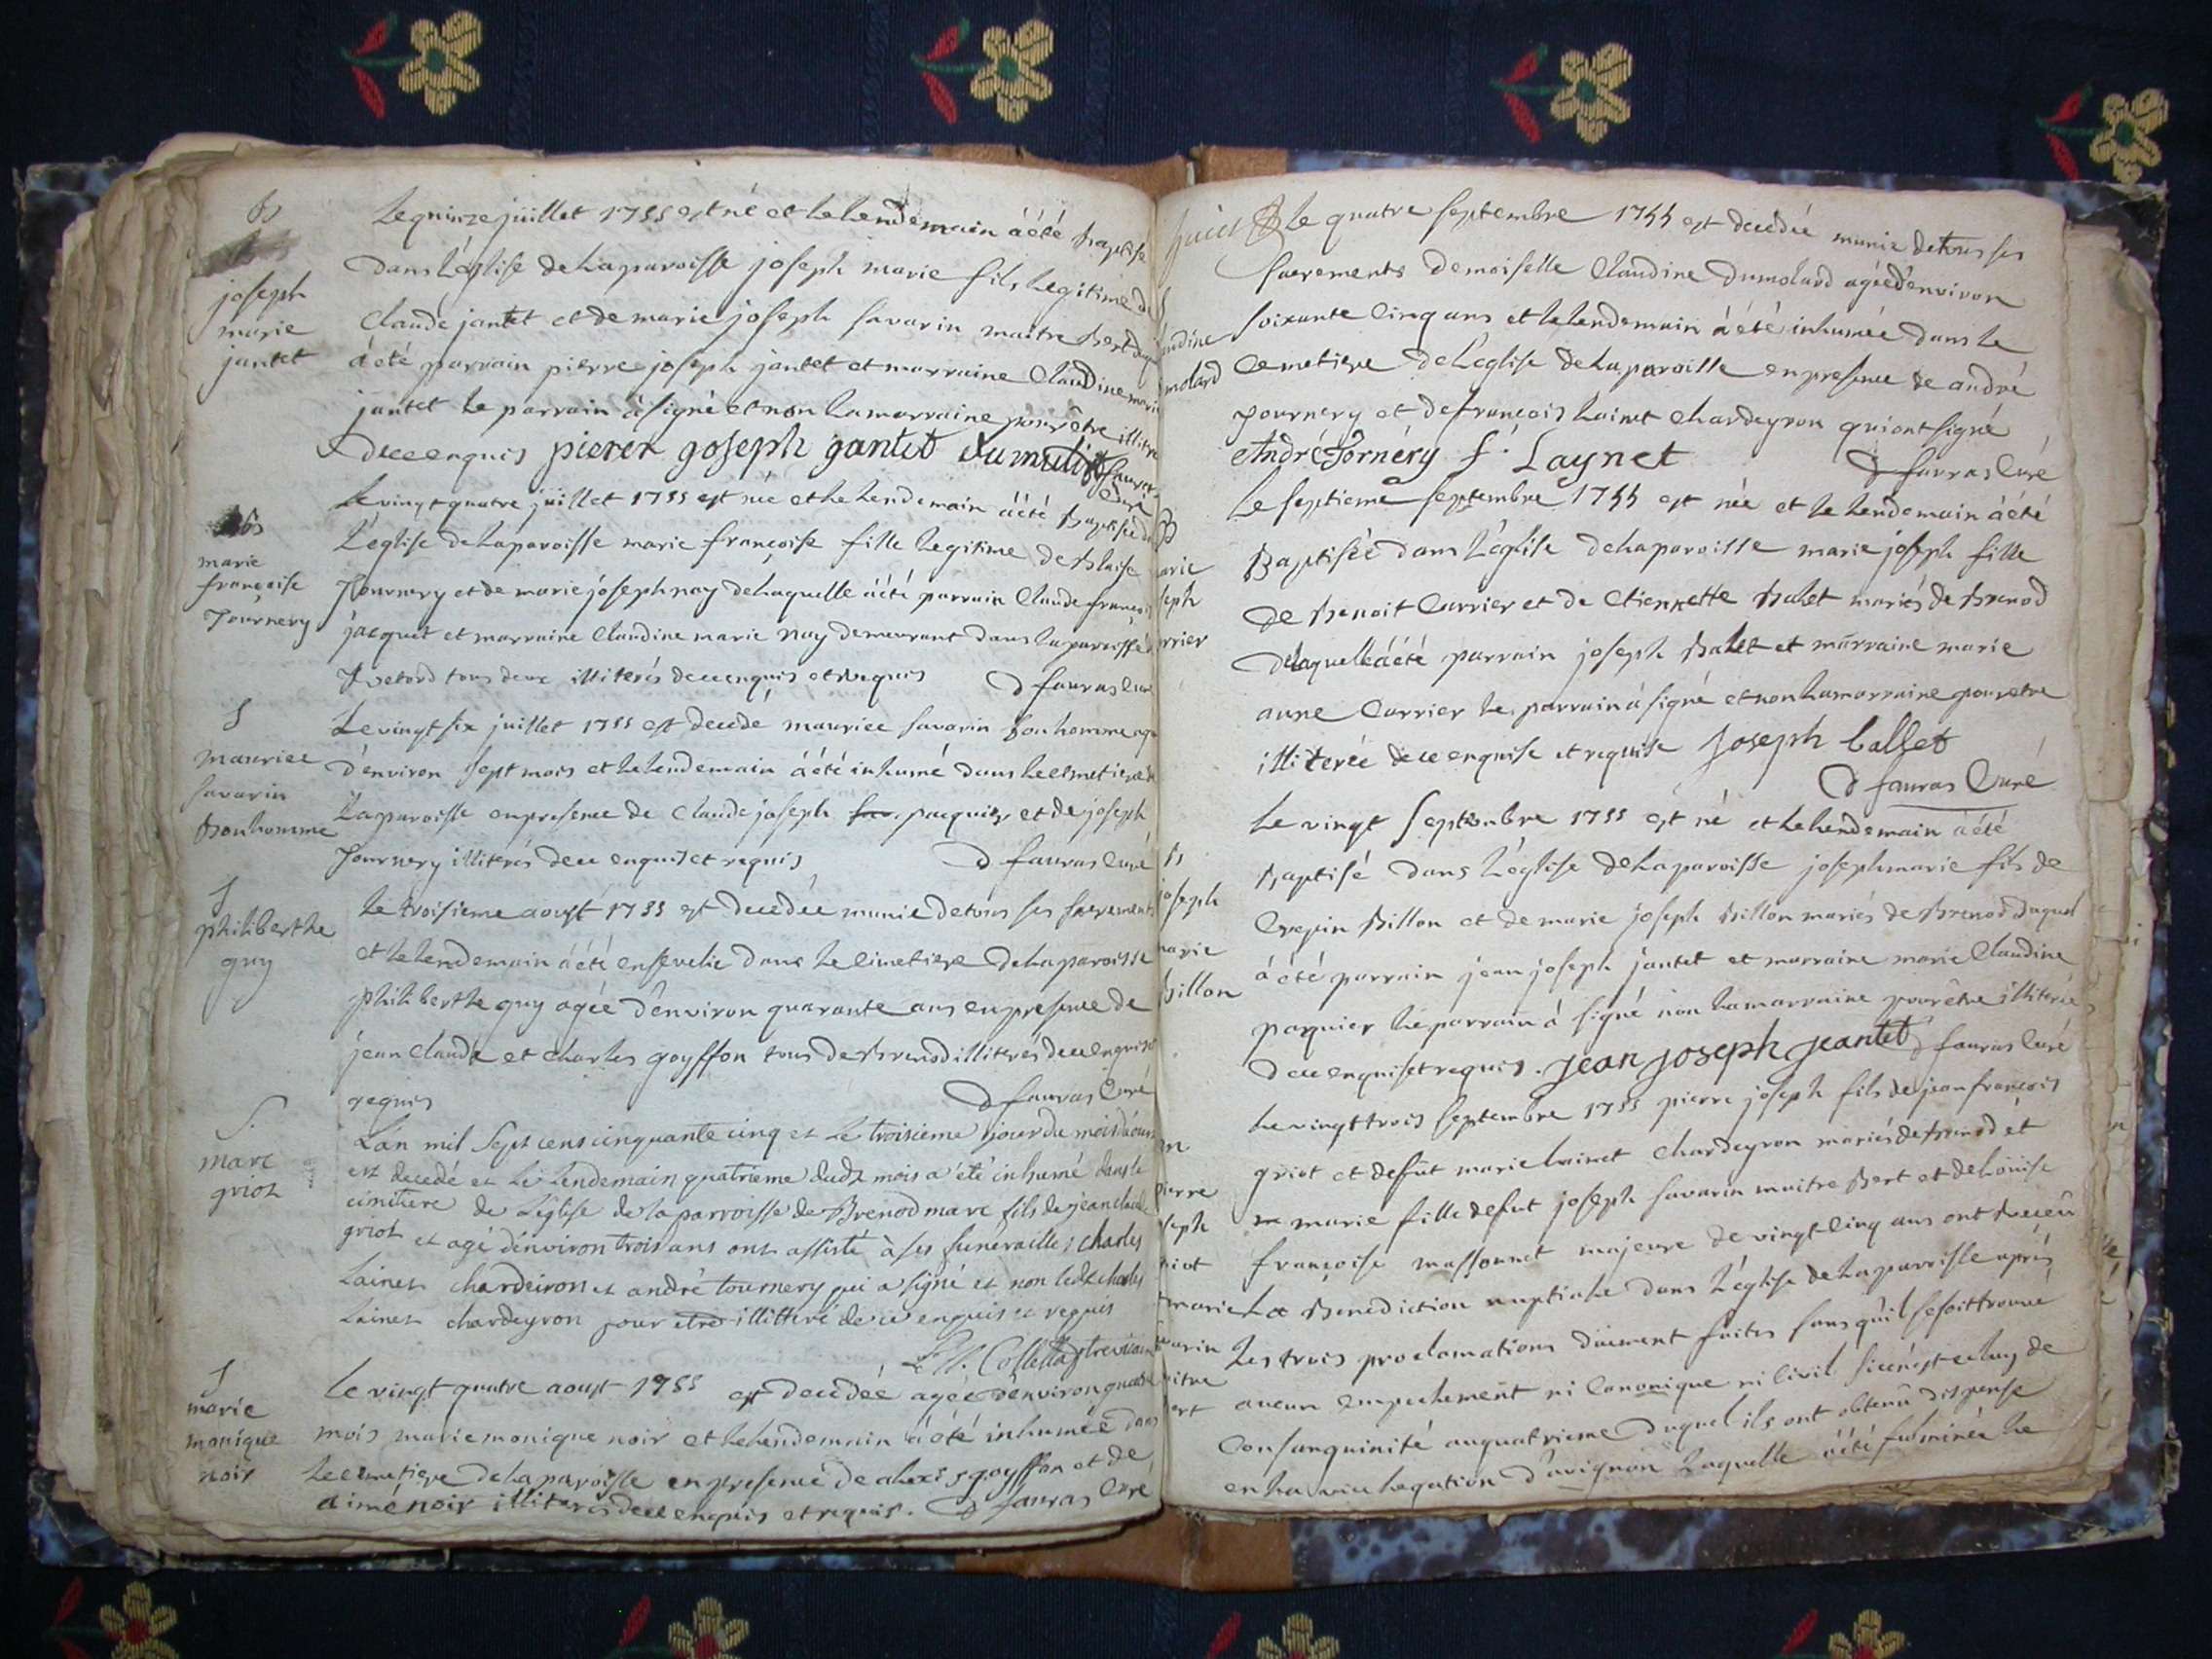 B
joseph
marie
jantet
Le quinze juillet 1755 est né et le lendemain à été baptisé
dans l'église de la paroisse joseph marie fils legitime de
Claude jantet et de marie joseph savarin maitre bert duquel
à été parrain pierre joseph jantet et marraine Claudine marie
jantet le parrain à signé et non la marraine pour être illiterée
de ce enquis pierer goseph gantet D fauras
Curé
B
marie
françoise
Tournery
Le vingt quatre juillet 1755 est née et le lendemain à été baptisée d
L'église de la paroisse marie françoise fille legitime de blaise
Tournery et de marie joseph nay de laquelle à été parrain Claude françois
jacquet et marraine Claudine marie nay demeurant dans la paroisse
tous deux illiterés de ce enquis et requis D fauras Curé
S
maurice
savarin
bonhomme
Le vingt six juillet 1755 est decedé maurice savarin bonhomme agé
d'environ sept mois et le lendemain à été inhumé dans le cemetiere de
La paroisse en presence de Claude joseph paquier et de joseph
Tournery illiterés de ce enquis et requis D fauras Curé
S
philiberthe
guy
Le troisieme aoust 1755 est decedée munie de tous ses sacrements
et le lendemain à été ensevelie dans le cimetiere de la paroisse
philiberthe guy agée d'environ quarante ans en presence de
jean Claude et Charles goyffon tous de brenod illiterés de ce enquis et
requis D fauras Curé
S.
marc
griot
L'an mil sept cens cinquante cinq et le troisieme jour du mois d'aoust
est decedé et le lendemain quatrieme dudt mois a été inhumé dans le
cimitiere de L'église de la parroisse de Brenod marc fils de jean claude
griot et agé d'environ trois ans ont assisté à ses funerailles charles
Lainet chardeiron et andré tournery qui a signé et non ledt charles
Lainet chardeyron pour etre illitteré de ce enquis et requis
Collettaz ptre vicaire
S
marie
monique
noir
Le vingt quatre aoust 1755 est decedée agée d'environ quatre
mois marie monique noir et le lendemain à été inhumée dans
le cemetiere de la paroisse en presence de alexis goyffon et de
aimé noir illiterés de ce enquis et requis. D fauras Curé
huict
S
audine
molard
Le quatre septembre 1755 est decedée munie de tous ses
sacrements demoiselle Claudine Dumolard agée d'environ
soixante cinq ans et le lendemain à été inhumée dans le
cemetiere de L'église de la paroisse en presence de andré
Tournery et de françois Lainet chardeyron qui ont signé
André Fornéry f. Laynet D fauras Curé
B
arie
seph
rrier
Le septieme septembre 1755 est née et le lendemain à été
Baptisée dans L'église de la paroisse marie joseph fille
de Benoit Carrier et de Etiennette Balet mariés de brenod
de laquelle à été parrain joseph Balet et marraine marie
anne Carrier le parrain à signé et non la marraine pour etre
illiterée de ce enquise et requise Joseph ballet
D fauras Curé
B
joseph
marie
billon
Le vingt septembre 1755 est né et le lendemain à été
Baptisé dans L'église de la paroisse joseph marie fils de
Crepin Billon et de marie joseph Billon mariés de Brenod duquel
à été parrain jean joseph jantet et marraine marie Claudine
paquier le parrain à signé non la marraine pour être illiterée
de ce enquise et requis. jean joseph jeantet D fauras Curé
m
pierre
oseph
riot
marie
avarin
aitre
bert
Le vingt trois septembre 1755 pierre joseph fils de jean françois
griot et defût marie Lainet chardeyron mariés de brenod et
marie fille defut joseph savarin maitre Bert et de Loüise
françoise massonnet majeure de vingt cinq ans ont receu
La Benediction nuptiale dans L'église de la paroisse aprés
Les trois proclamations düement faites sans qu'il se soit trouvé
aucun empechement ni Canonique ni Civil si ce n'est celuy de
Consanguinité au quatrieme duquel ils ont obtenû dispense
en la vice legation d'avignon Laquelle à été fulminée le